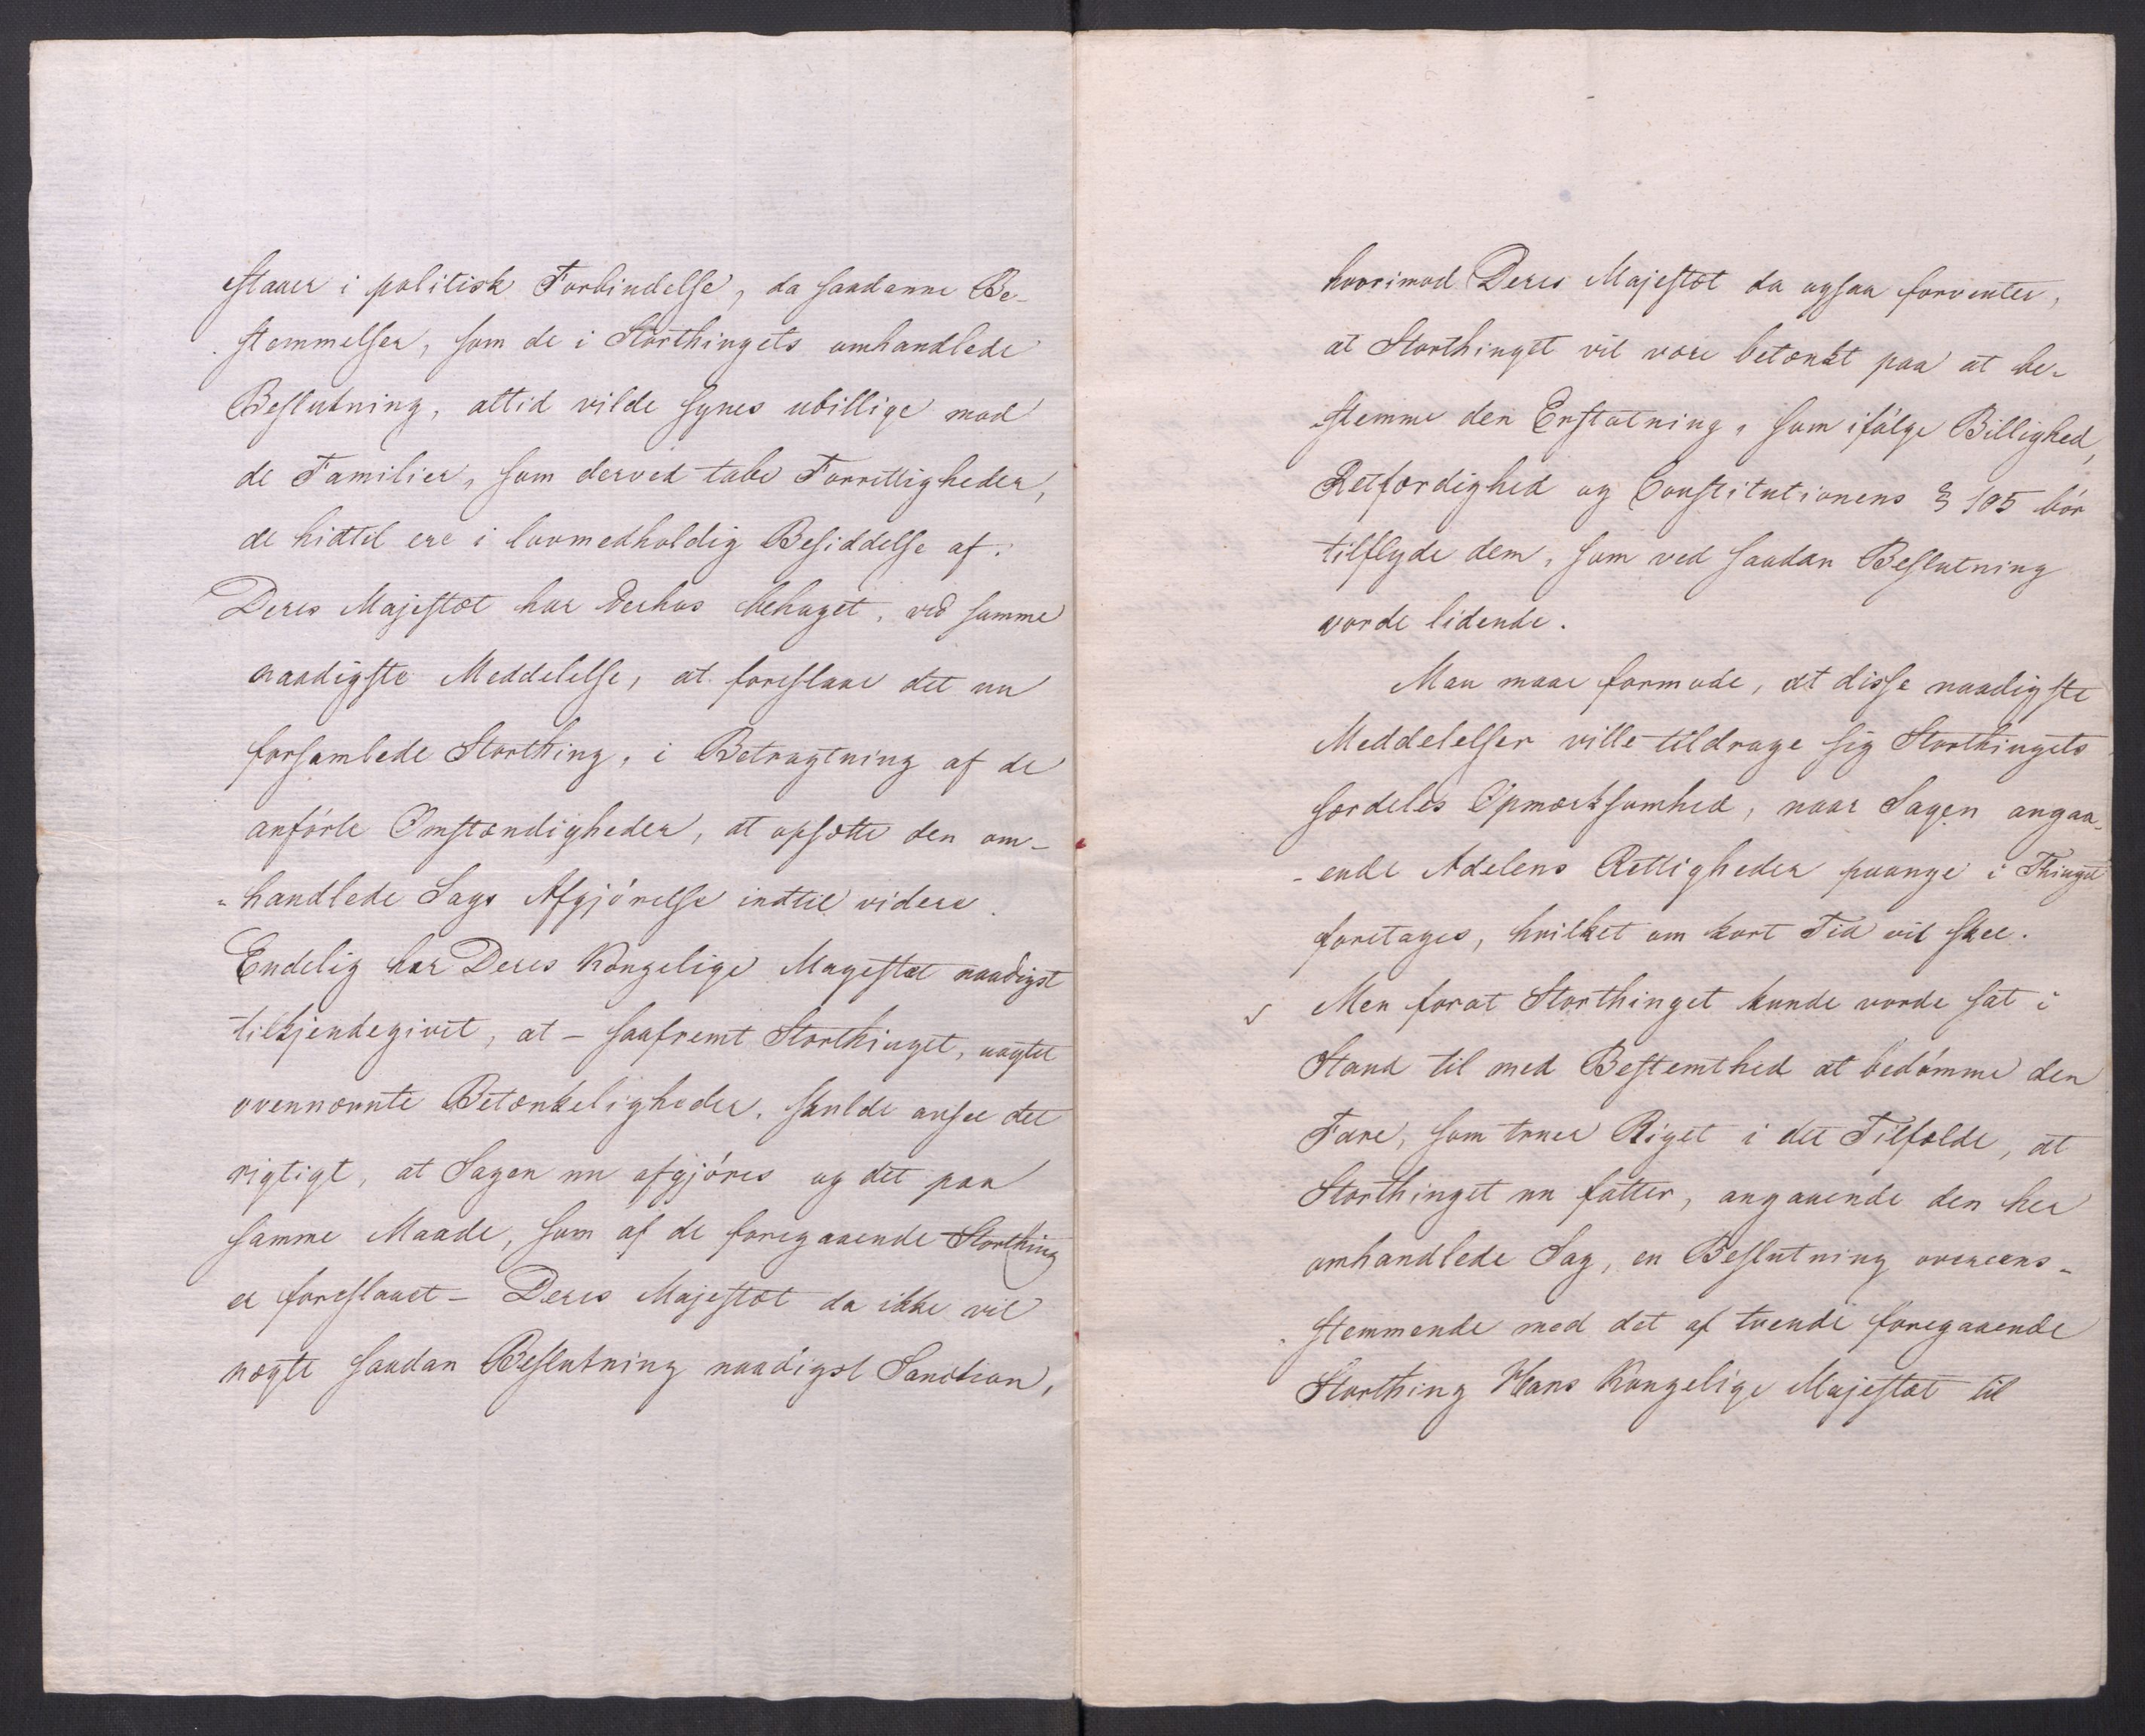 staaer i politisk Forbindelse, da saadanne Be-
stemmelser, som de i Storthingets omhandlede
Beslutning, altid vilde synes ubillige mod
de Familier, som derved tabe Forrettigheder,
de hidtil ere i lovmedholdig Besiddelse af.
Deres Majestæt har derhos behaget, ved samme
naadigste Meddelelse, at foreslaae det nu
forsamlede Storthing, i Betragtning af de
anförte Omstændigheder, at opsætte den om-
handlede Sags Afgjörelse indtil videre.
Endelig har Deres Kongelige Magestæt naadigst
tilkjendegivet, at - saafremt Storthinget, uagtet
ovennævnte Betænkeligheder, skulde ansee det
rigtigt, at Sagen nu afgjöres og det paa
samme Maade, som af de foregaaende Storthing
er foreslaaet - Deres Majestæt da ikke vil
nægte saadan Beslutning naadigst Sanction,
hvorimod Deres Majestæt da ogsaa forventer,
at Storthinget vil være betænkt paa at be-
stemme den Erstatning, som ifölge Billighed,
Retfærdighed og Constitutionens § 105 bör
tilflyde dem, som ved saadan Beslutning
vorde lidende.
Man maae formode, at disse naadigste
Meddelelser ville tildrage sig Storthingets
særdeles Opmærksomhed, naar Sagen angaa-
-ende Adelens Rettigheder paange i Thinget
foretages, hvilket om kort Tid vil skee.
Men forat Storthinget kunde vorde sat i
Stand til med Bestemthed at bedömme den
Fare, som truer Riget i det Tilfælde, at
Storthinget nu fatter, angaaende den her
omhandlede Sag, en Beslutning overeens-
stemmende med det af tvende foregaaende
Storthing Hans Kongelige Majestæt til